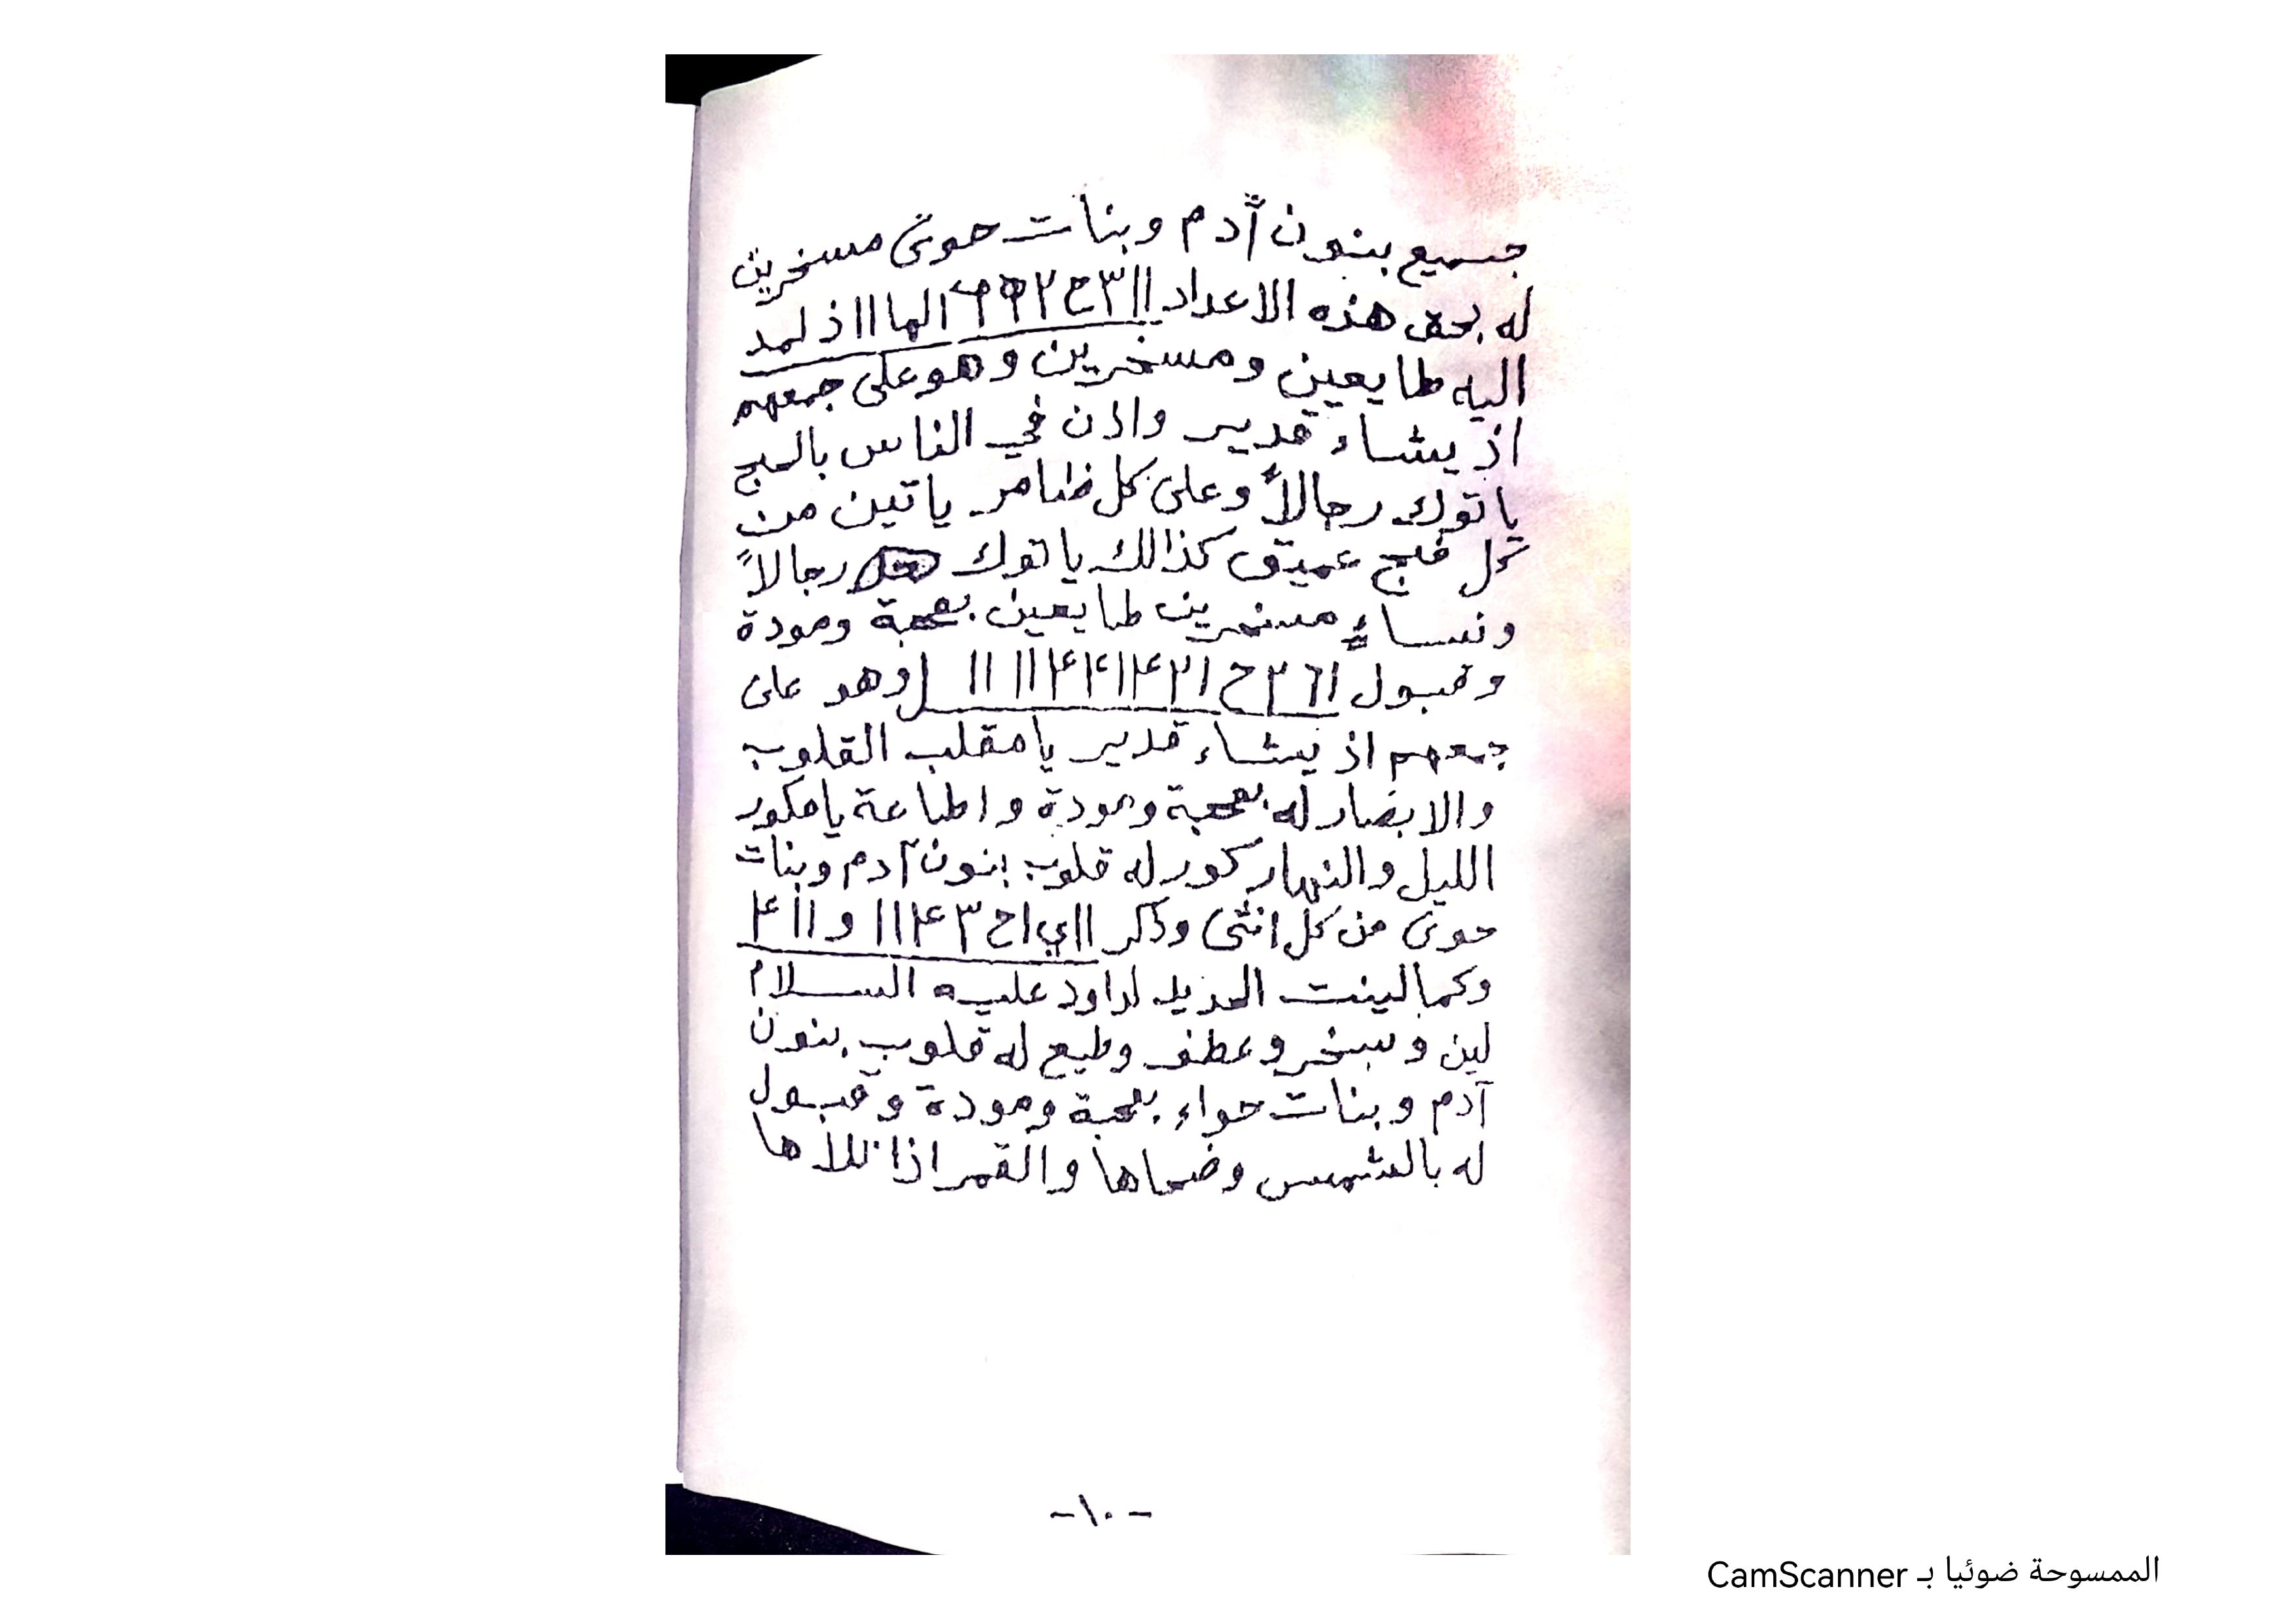 جميع بنون آدم وبنات حوى مسخرين
له بحق هذه الاعداد
اليه طايعين ومسخرين وهو على جمعهم
اذ يشاء قدير واذن في الناس بالحج
ياتوك رجالاً وعلى كل ظامر ياتين من
كل فج عميق كذالك ياتوك رجالاً
ونساءٍ مسخرين طايعين بمحبة ومودة
وقبول وهو على
جمعهم اذ يشاء قدير يا مقلب القلوب
والابصار له بمحبة ومودة واطاعة يا مكور
الليل والنهار كور له قلوب بنون آدم وبنات
حوى من كل انثى وذكر
وكما لينت الحديد لداود عليه السلام
لين وسخر وعطف وطيع له قلوب بنون
آدم وبنات حواء بمحبة ومودة وقبول
له بالشمس وضحاها والقمر اذا تلاها
-١٠-
الممسوحة ضوئيا بـ CamScanner